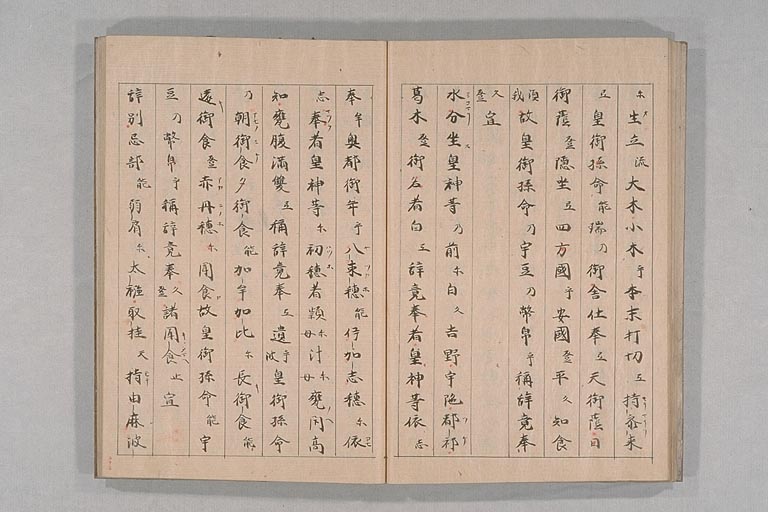 尓生立流大木小木乎本末打切弖持參来
弖皇御孫命能瑞乃御舎仕奉弖天御蔭日
御蔭登隠坐弖四方國乎安國登平久知食
須我故皇御孫命乃宇豆乃幣帛乎稱辞竟奉
久登宣
水分坐皇神等乃前尓白久吉野宇陁都祁
葛木登御名者白弖辞竟奉者皇神等依志
奉牟奥都御年乎八束穂能伊加志穂尓依
志奉者皇神等尓初穂者頴尓母汁尓母甕閇高
知甕腹満雙弖稱辞竟奉弖遺乎波皇御孫命
乃朝御食夕御食能加牟加比尓長御食能
遠御食登赤丹穂尓聞食故皇御孫命能宇
豆乃幣帛乎稱辞竟奉久登諸聞食止宣
辞別忌部能弱肩尓太襁取挂天持由麻波